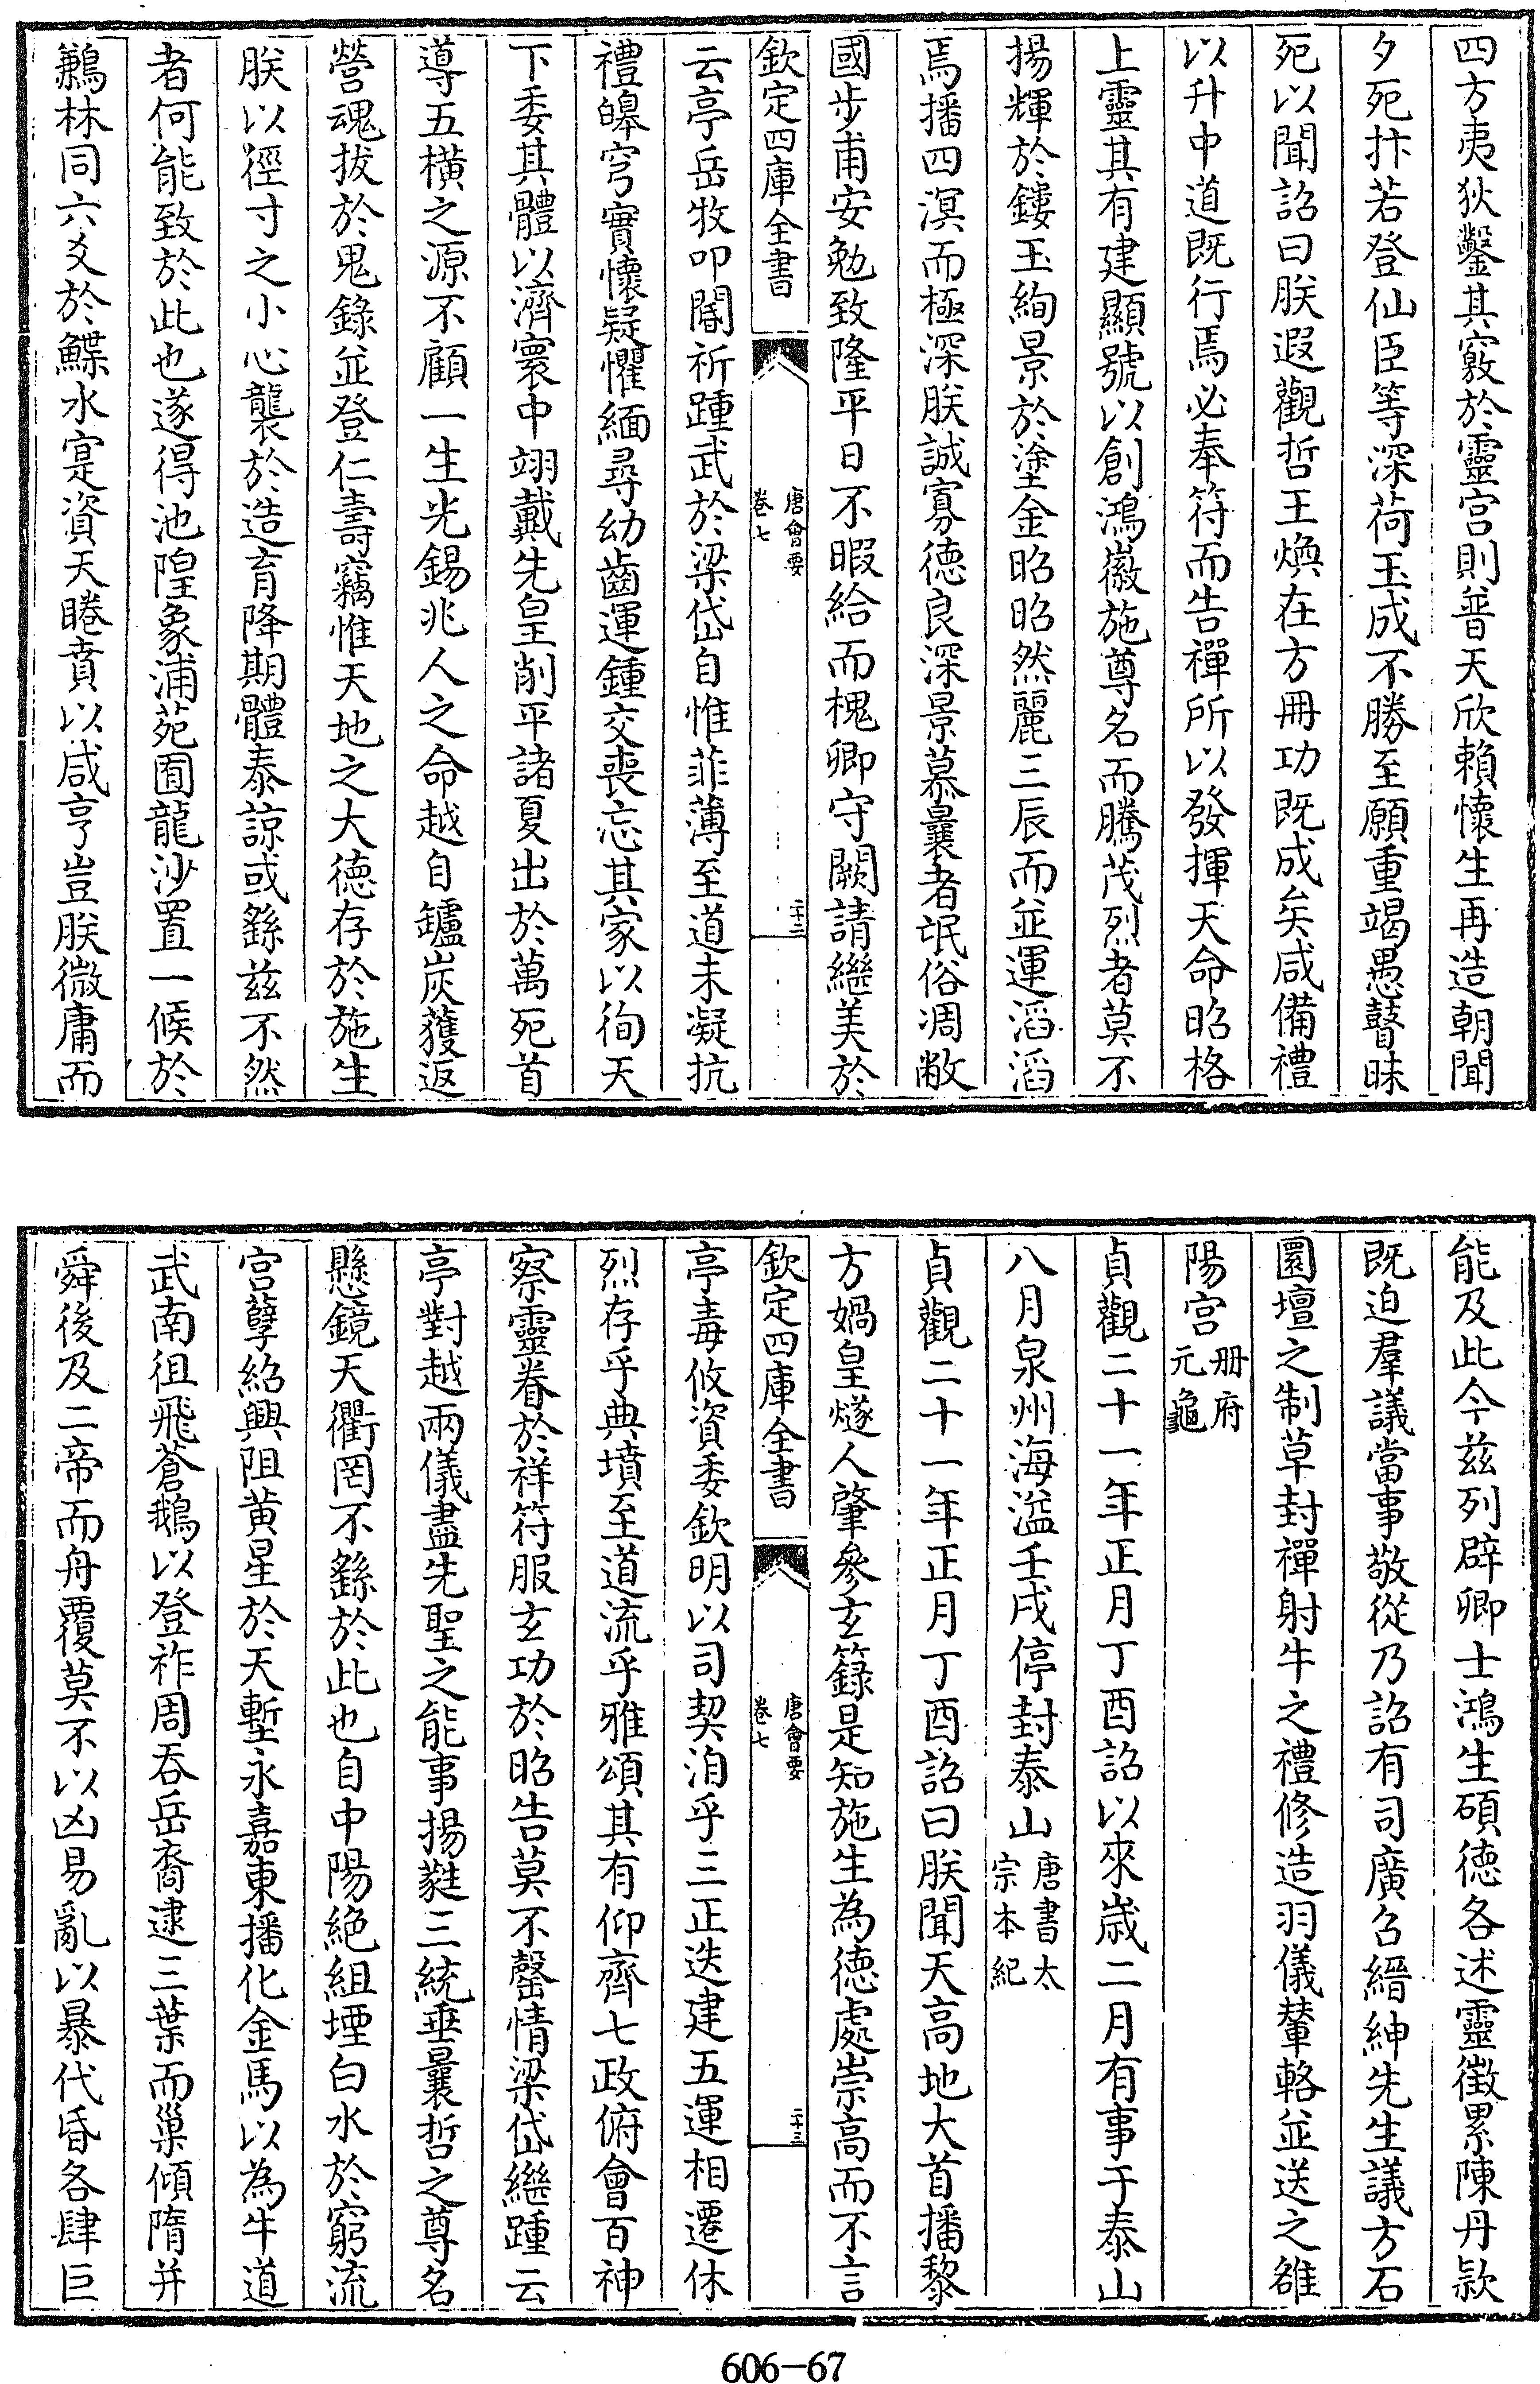 四方夷狄鑿其竅於靈宫則普天欣賴懷生再造朝聞
夕死抃若登仙臣等深荷玉成不勝至願重竭愚瞽昧
死以聞詔曰朕遐觀哲王煥在方冊功既成矣咸備禮
以升中道既行焉必奉符而告禪所以發揮天命昭格
上靈其有建顯號以創鴻徽施尊名而騰茂烈者莫不
揚輝於鏤玉絢景於塗金昭昭然麗三辰而並運滔滔
焉播四溟而極深朕誠寡德良深景慕曩者氓俗凋敝
國步甫安勉致隆平日不暇給而槐卿守闕請繼美於
欽定四庫全書
唐會要
卷七
二十三
云亭岳牧叩閽祈踵武於梁岱自惟菲薄至道未凝抗
禮皞穹實懷疑懼緬尋幼齒運鍾交喪忘其家以徇天
下委其體以濟寰中翊戴先皇削平諸夏出於萬死首
導五橫之源不顧一生光錫兆人之命越自鑪炭獲返
營魂拔於鬼錄並登仁壽竊惟天地之大德存於施生
朕以徑寸之小心襲於造育降期體泰諒或繇兹不然
者何能致於此也遂得池隍象浦苑囿龍沙置一候於
鶼林同六爻於鰈水寔資天睠賁以咸亨豈朕微庸而
能及此今兹列辟卿士鴻生碩德各述靈徵累陳丹款
既迫羣議當事敬從乃詔有司廣召縉紳先生議方石
圜壇之制草封禪射牛之禮修造羽儀輦輅並送之雒
陽宮冊府元龜
貞觀二十一年正月丁酉詔以來歲二月有事于泰山
八月泉州海溢壬戌停封泰山唐書太宗本紀
貞觀二十一年正月丁酉詔曰朕聞天高地大首播黎
方媧皇燧人肇參玄籙是知施生為德處崇高而不言
欽定四庫全書
唐會要
卷七
二十三
亭毒攸資委欽明以司契洎乎三正迭建五運相遷休
烈存乎典墳至道流乎雅頌其有仰齊七政俯會百神
察靈眷於祥符服玄功於昭告莫不罄情梁岱繼踵云
亭對越兩儀盡先聖之能事揚蕤三統垂曩哲之尊名
懸鏡天衢罔不繇於此也自中陽絶組堙白水於窮流
宫孽紹興阻黄星於天塹永嘉東播化金馬以為牛道
武南徂飛蒼鵝以登祚周吞岳裔逮三葉而巢傾隋并
舜後及二帝而舟覆莫不以凶易亂以暴代昏各肆巨
606-67